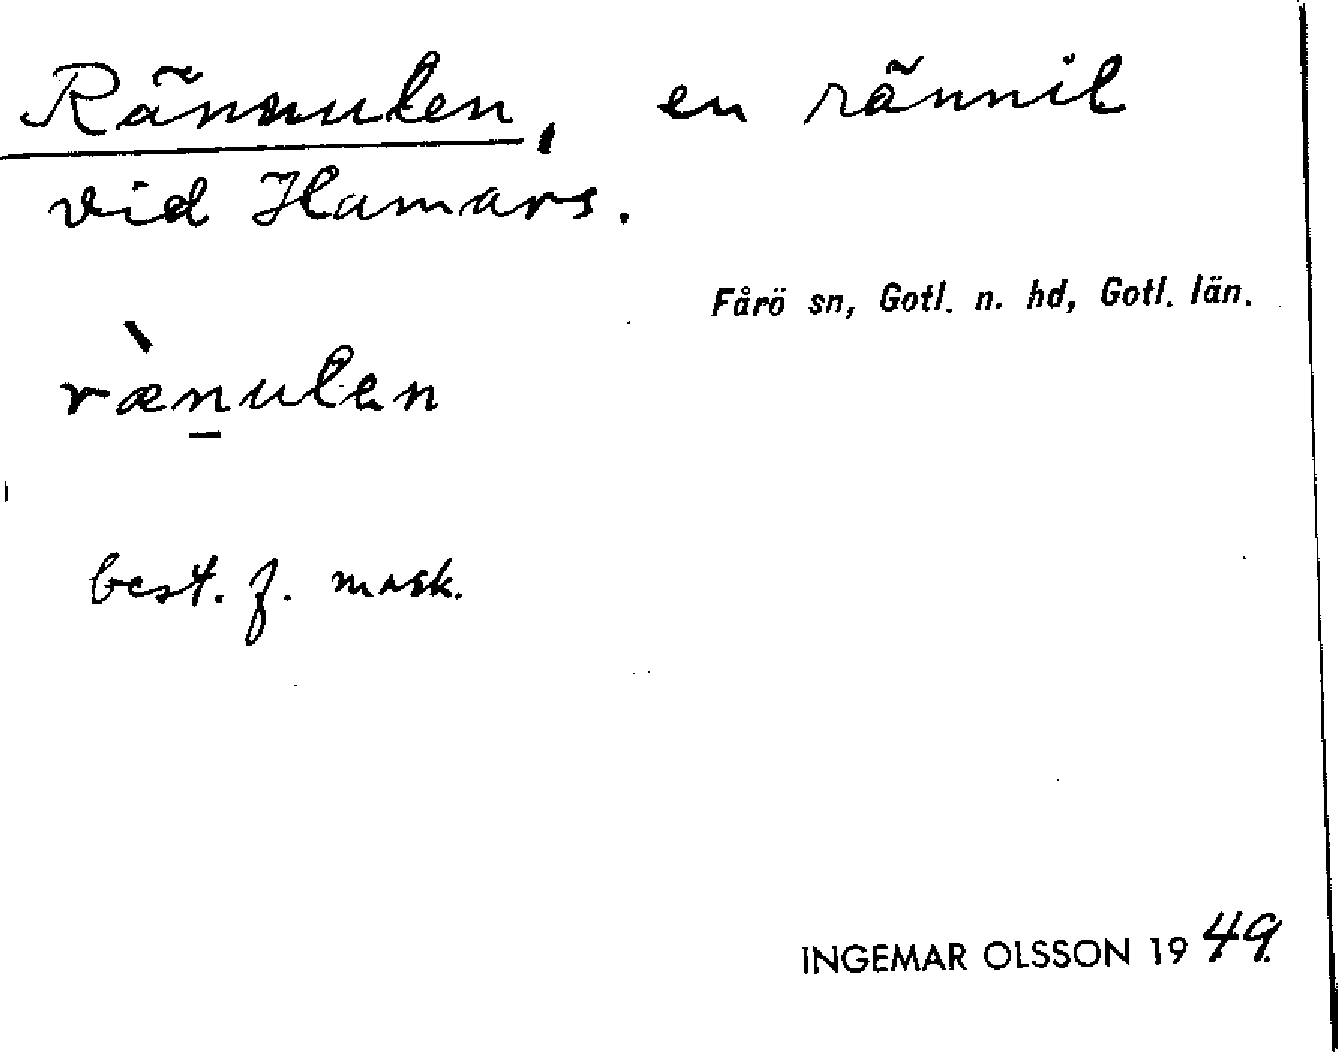 Rännulen, en rännil
vid Hamars.
Fårö sn, Gotl. n. hd, Gotl. län.
ræ̀n̲ulen
best. f. mask.
INGEMAR OLSSON 1949